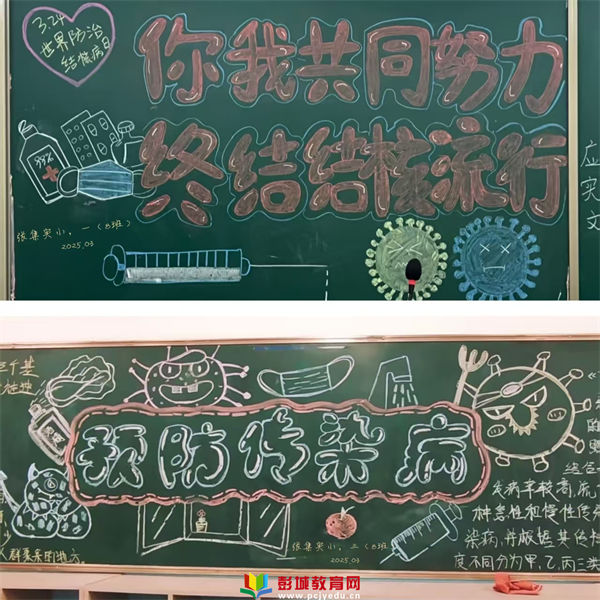 3.24
世界防治
结核病日
你我共同努力
终结结核流行
99%
张集实小，一（8班）
2025.03
应
实
文
预防传染病
张集实小，二（8班）
2025.03
发病率较高，流
染病，并根据其传
度不同分为甲、乙、丙三类
人群聚集的地方
彭城教育网
www.pcjyedu.cn